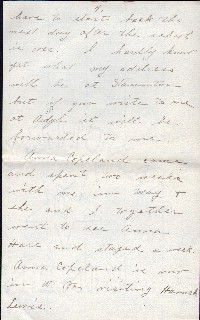 9.
have to start back the
next day after the school
is over. I hardly know
yet what my address
will be at Hamilton
but if you write to me
at it will be
forwarded to me.
Anna Copeland came
and spent two weeks
with me in May &
she and I together
went to see Anna
Hare and staged a week.
Anna Copeland is now
in visiting Hannah
Lewis.